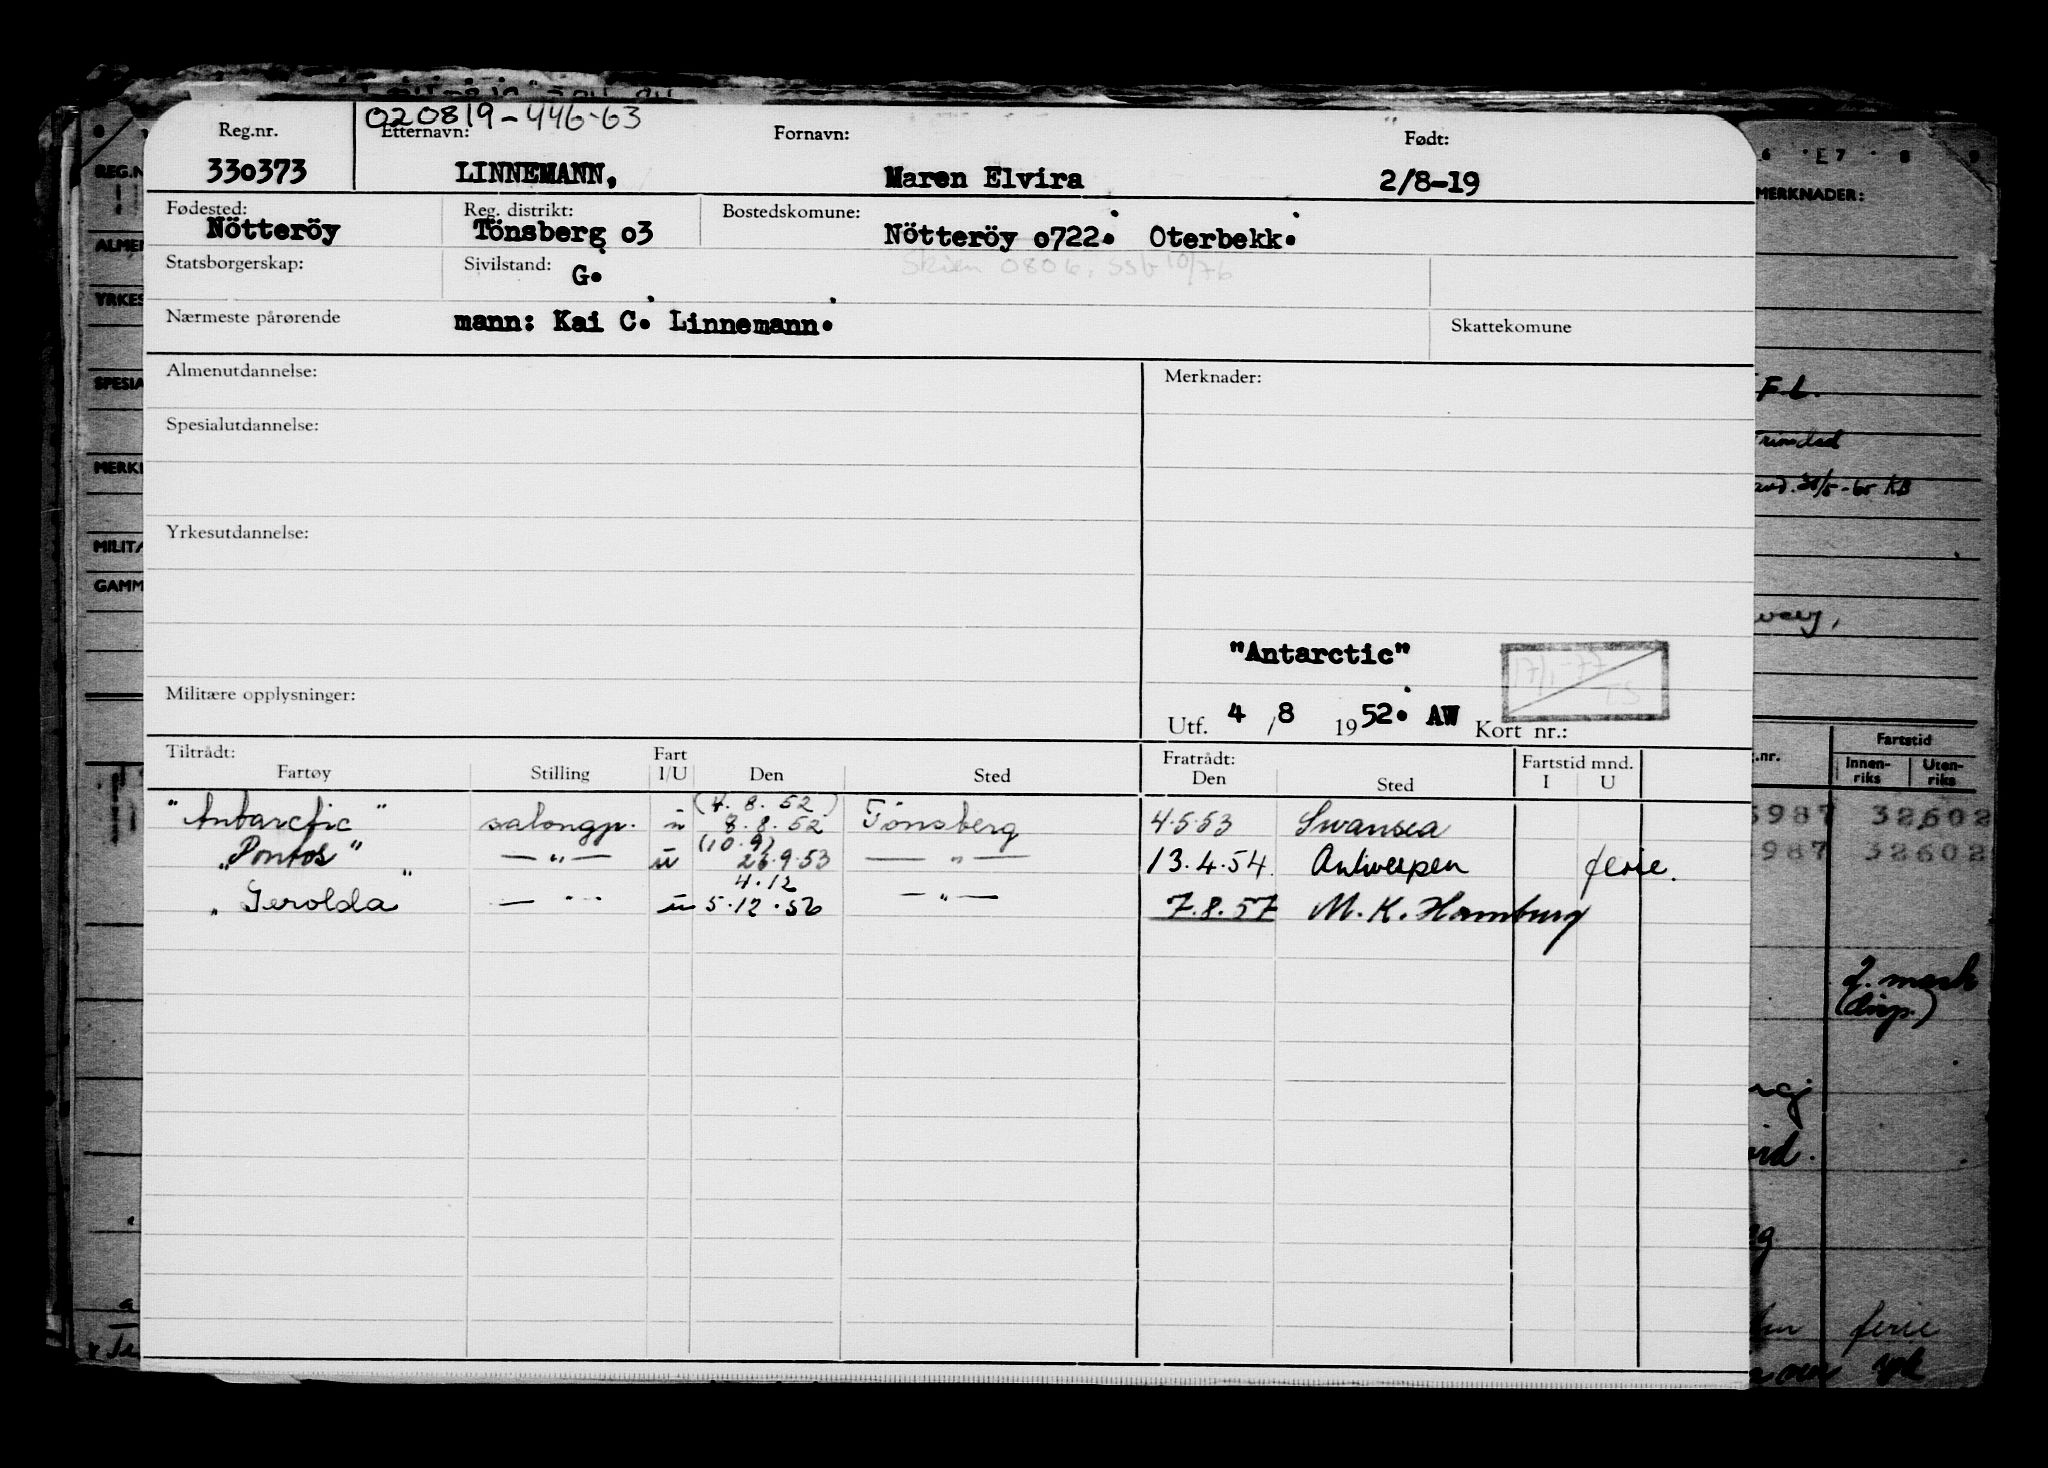 020819-446-63
Reg.nr. Etternavn: Fornavn: Født:
330373 LINNEMANN, Maren Elvira 2/8-19
Fødested: Reg. distrikt: Bostedskomune:
Nötteröy Tönsberg o3 Nötteröy o722. Oterbekk.
Statsborgerskap: Sivilstand: G. Skien 0806, SSb 10/76
Nærmeste pårørende mann: Kai C. Linnemann. Skattekomune
Almenutdannelse: Merknader:
Spesialutdannelse:
Yrkesutdannelse:
"Antarctic"
17/1-77 TS
Militære opplysninger:
Utf. 4 / 8 1952. AW Kort nr.:
Tiltrådt: Fart Fratrådt: Fartstid mnd.
Fartøy Stilling I/U Den Sted Den Sted I U
(4. 8. 52)
"Antarctic" salongp. u 8.8.52 Tönsberg 4.5.53 Swansea
(10.9)
"Pontos" —"— u 26.9.53 —"— 13.4.54. Antwerpen ferie.
4.12
"Gerolda" —"— u 5.12.56 —"— 7.8.57 M.K. Hamburg
REG.N
ALMEN
YRKES
SPESIA
MERK
MILITÆ
GAMM
6 E7 8 9
MERKNADER:
F.L.
Trinidad
30/5-60 KB
.nr. Fartstid
Innen-riks Uten-riks
987 32602
987 32602
2. mask
(disp.)
ferie
syk